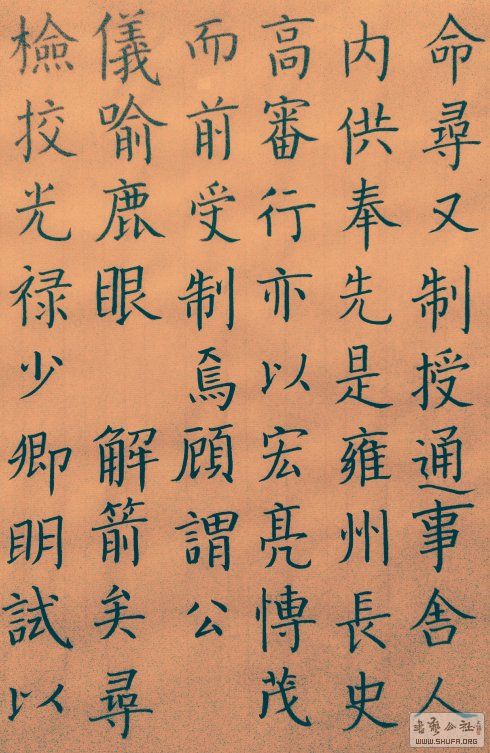 命尋又制授通事舍人
内供奉先是雍州長史
高審行亦以宏亮愽茂
而前受制焉顧謂公
儀喻鹿眼 解箭矣尋
檢挍光禄少卿明試以
WWW.SHUFA.ORG